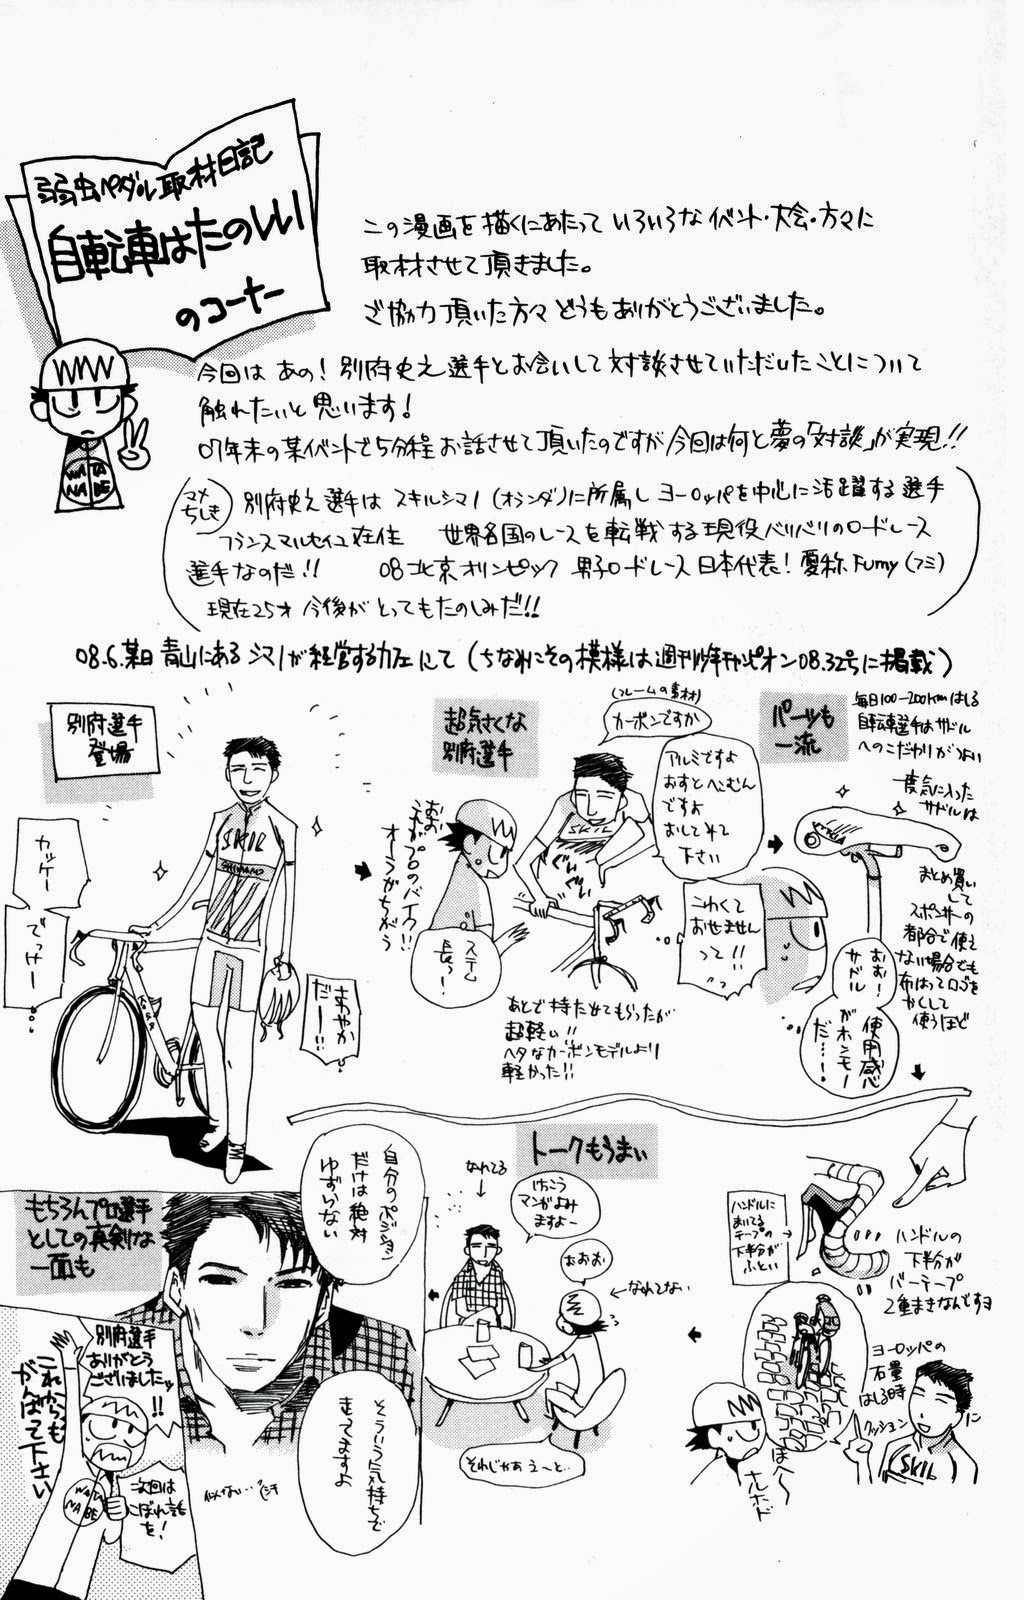 弱虫ペダル取材日記
自転車はたのしい
のコーナー
この漫画を描くにあたっていろいろなイベント・大会・方々に
取材させて頂きました。
ご協力頂いた方々どうもありがとうございました。
今回はあの!別府史之選手とお会いして対談させていただいたことについて
触れたいと思います!
07年末の某イベントで5分程お話させて頂いたのですが今回は何と夢の「対談」が実現!!
マメ
ちしき
別府史之選手はスキルシマノ(オランダ)に所属しヨーロッパを中心に活躍する選手
フランスマルセイユ在住 世界各国のレースを転戦する現役バリバリのロードレース
選手なのだ!! 08北京オリンピック 男子ロードレース日本代表!愛称Fumy(フミ)
現在25才 今後がとってもたのしみだ!!
08.6.某日 青山にあるシマノが経営するカフェにて(ちなみにその模様は週刊少年チャンピオン08.32号に掲載)
別府選手
登場
カッケー
でっけー
SKIL
SHIMANO
Koga
さわやか
だー!!
超気さくな
別府選手
(フレームの素材)
カーボンですか
アルミですよ
おすとへこむん
ですよ
おしてみて
下さい
おお
これがプロのバイク!!
オーラがちがう
SKIL
ぐいぐい
ステム
長っ!
こわくて
おせません
って!!
あとで持たせてもらったが
超軽い!!
ヘタなカーボンモデルより
軽かった!!
パーツも
一流
毎日100-200kmはしる
自転車選手はサドル
へのこだわりがつよい
一度気に入った
サドルは
まとめ買い
して
スポンサーの
都合で使え
ない場合でも
布はってロゴを
かくして
使うほど
おお!
サドル
がホンモー
使用感
だ…!
ハンドルに
まいてる
テープの
下半分が
ふとい
ハンドルの
下半分が
バーテープ
2重まきなんですヨ
ヨーロッパの
石畳
はしる時
クッションに
SKIL
ほへ〜
ナルホド
トークもうまい
なれてる
けっこう
マンガよみ
ますよー
おおお
←なれてない
それじゃあえーと…
もちろんプロ選手
としての真剣な
一面も
自分のポジション
だけは絶対
ゆずらない
そういう気持ちで
走ってますよ
似てない…
別府選手
ありがとう
ございましたッ
!!
これからも
がんばって下さい
WATA
NABE
次回は
こぼれ話
を!